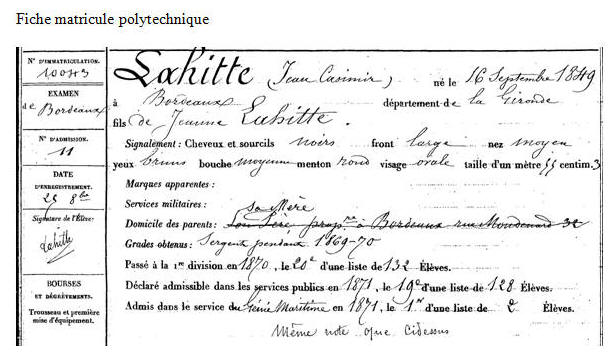 Fiche matricule polytechnique
N° D'IMMATRICULATION.
10043
EXAMEN
de Bordeaux
N° D'ADMISSION.
11
DATE
D'ENREGISTREMENT.
25 8bre
Signature de l'Élève:
Lahitte
BOURSES
ET DÉGRÈVEMENTS.
Trousseau et première
mise d'équipement.
Lahitte (Jean Casimir) né le 16 Septembre 1849
à Bordeaux département de la Gironde
fils de Jeanne Lahitte.
Signalement: Cheveux et sourcils noirs front large nez moyen
yeux bruns bouche moyenne menton rond visage ovale taille d'un mètre 55 centim.3
Marques apparentes:
Services militaires:
sa Mère
Domicile des parents: Son Père propre à Bordeaux rue Mondenard 32
Grades obtenus: Sergent pendant 1869-70
Passé à la 1re division en 1870, le 20e d'une liste de 132 Élèves.
Déclaré admissible dans les services publics en 1871, le 19e d'une liste de 128 Élèves.
Admis dans le service du Génie Maritime en 1871, le 1er d'une liste de 2 Élèves.
Même note que Cidessus